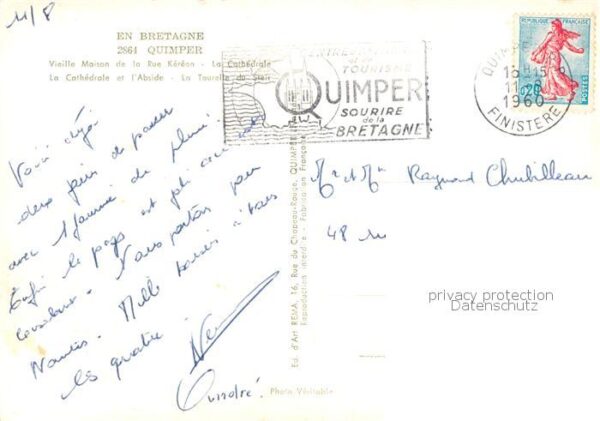 11/8
EN BRETAGNE
2864 QUIMPER
Vieille Maison de la Rue Kéréon - La Cathédrale
La Cathédrale et l'Abside - La Tourelle du Steir
TOURISME
QUIMPER
SOURIRE
de la
BRETAGNE
REPUBLIQUE FRANÇAISE
0,20
POSTES
15H15
11-8
1960
FINISTERE
Voilà déjà
deux jours de passés
avec 1 journée de pluie.
Enfin le pays est joli
Nous partons pour
Nantes. Mille baisers à tous
les quatre.
André.
Mr et Mme Raymond Chubilleau
48
Ed. d'Art REMA, 16, Rue du Chapeau-Rouge, QUIMPER
Reproduction interdite Fabrication Française
Photo Véritable
privacy protection
Datenschutz